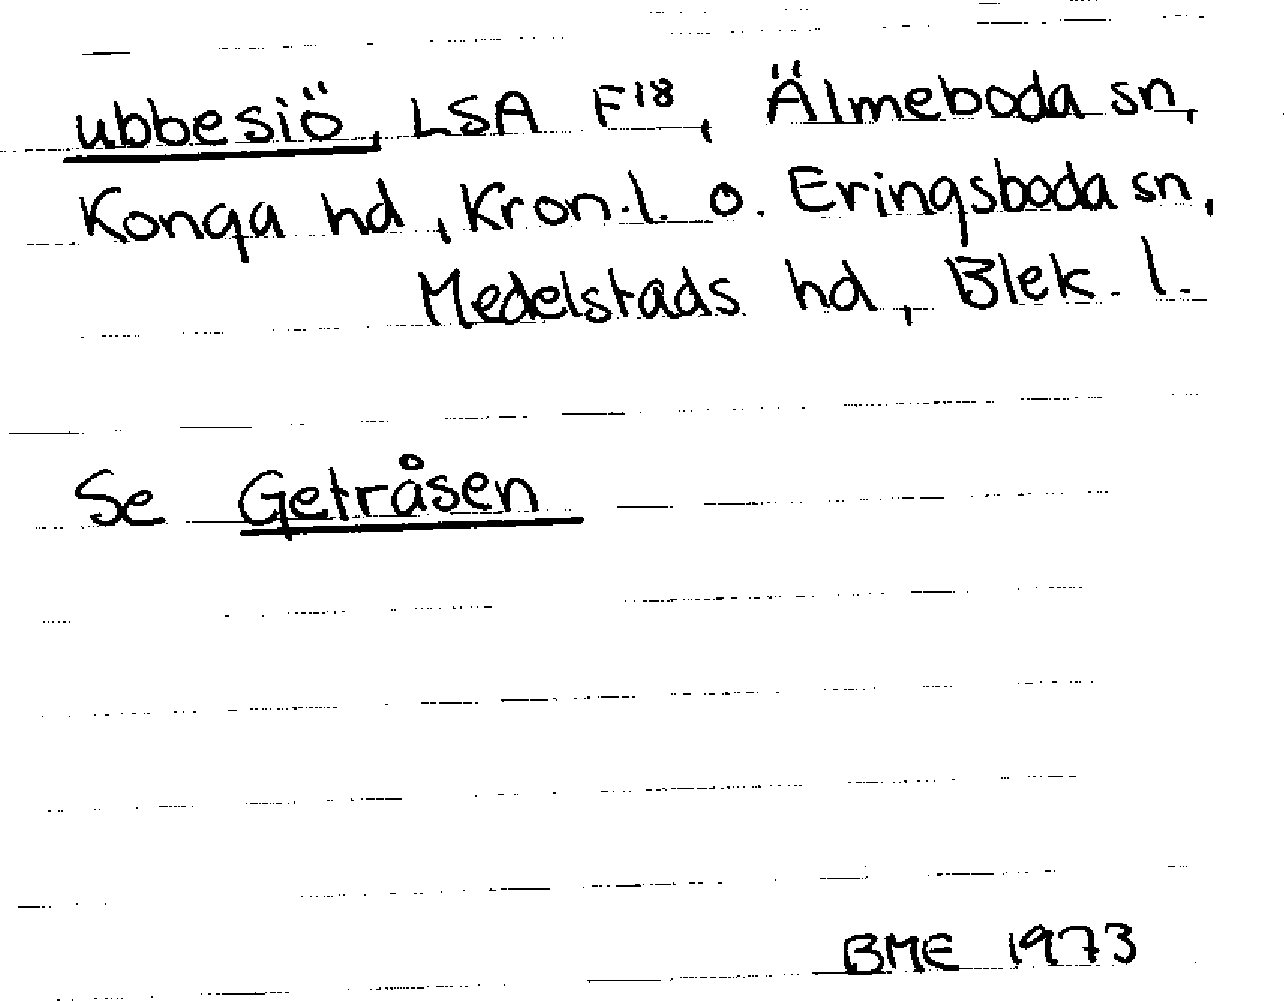 ubbesiö, LSA F18, Älmeboda sn,
Konga hd, Kron.l. o. Eringsboda sn,
Medelstads hd, Blek. l.
Se Getråsen
BME 1973